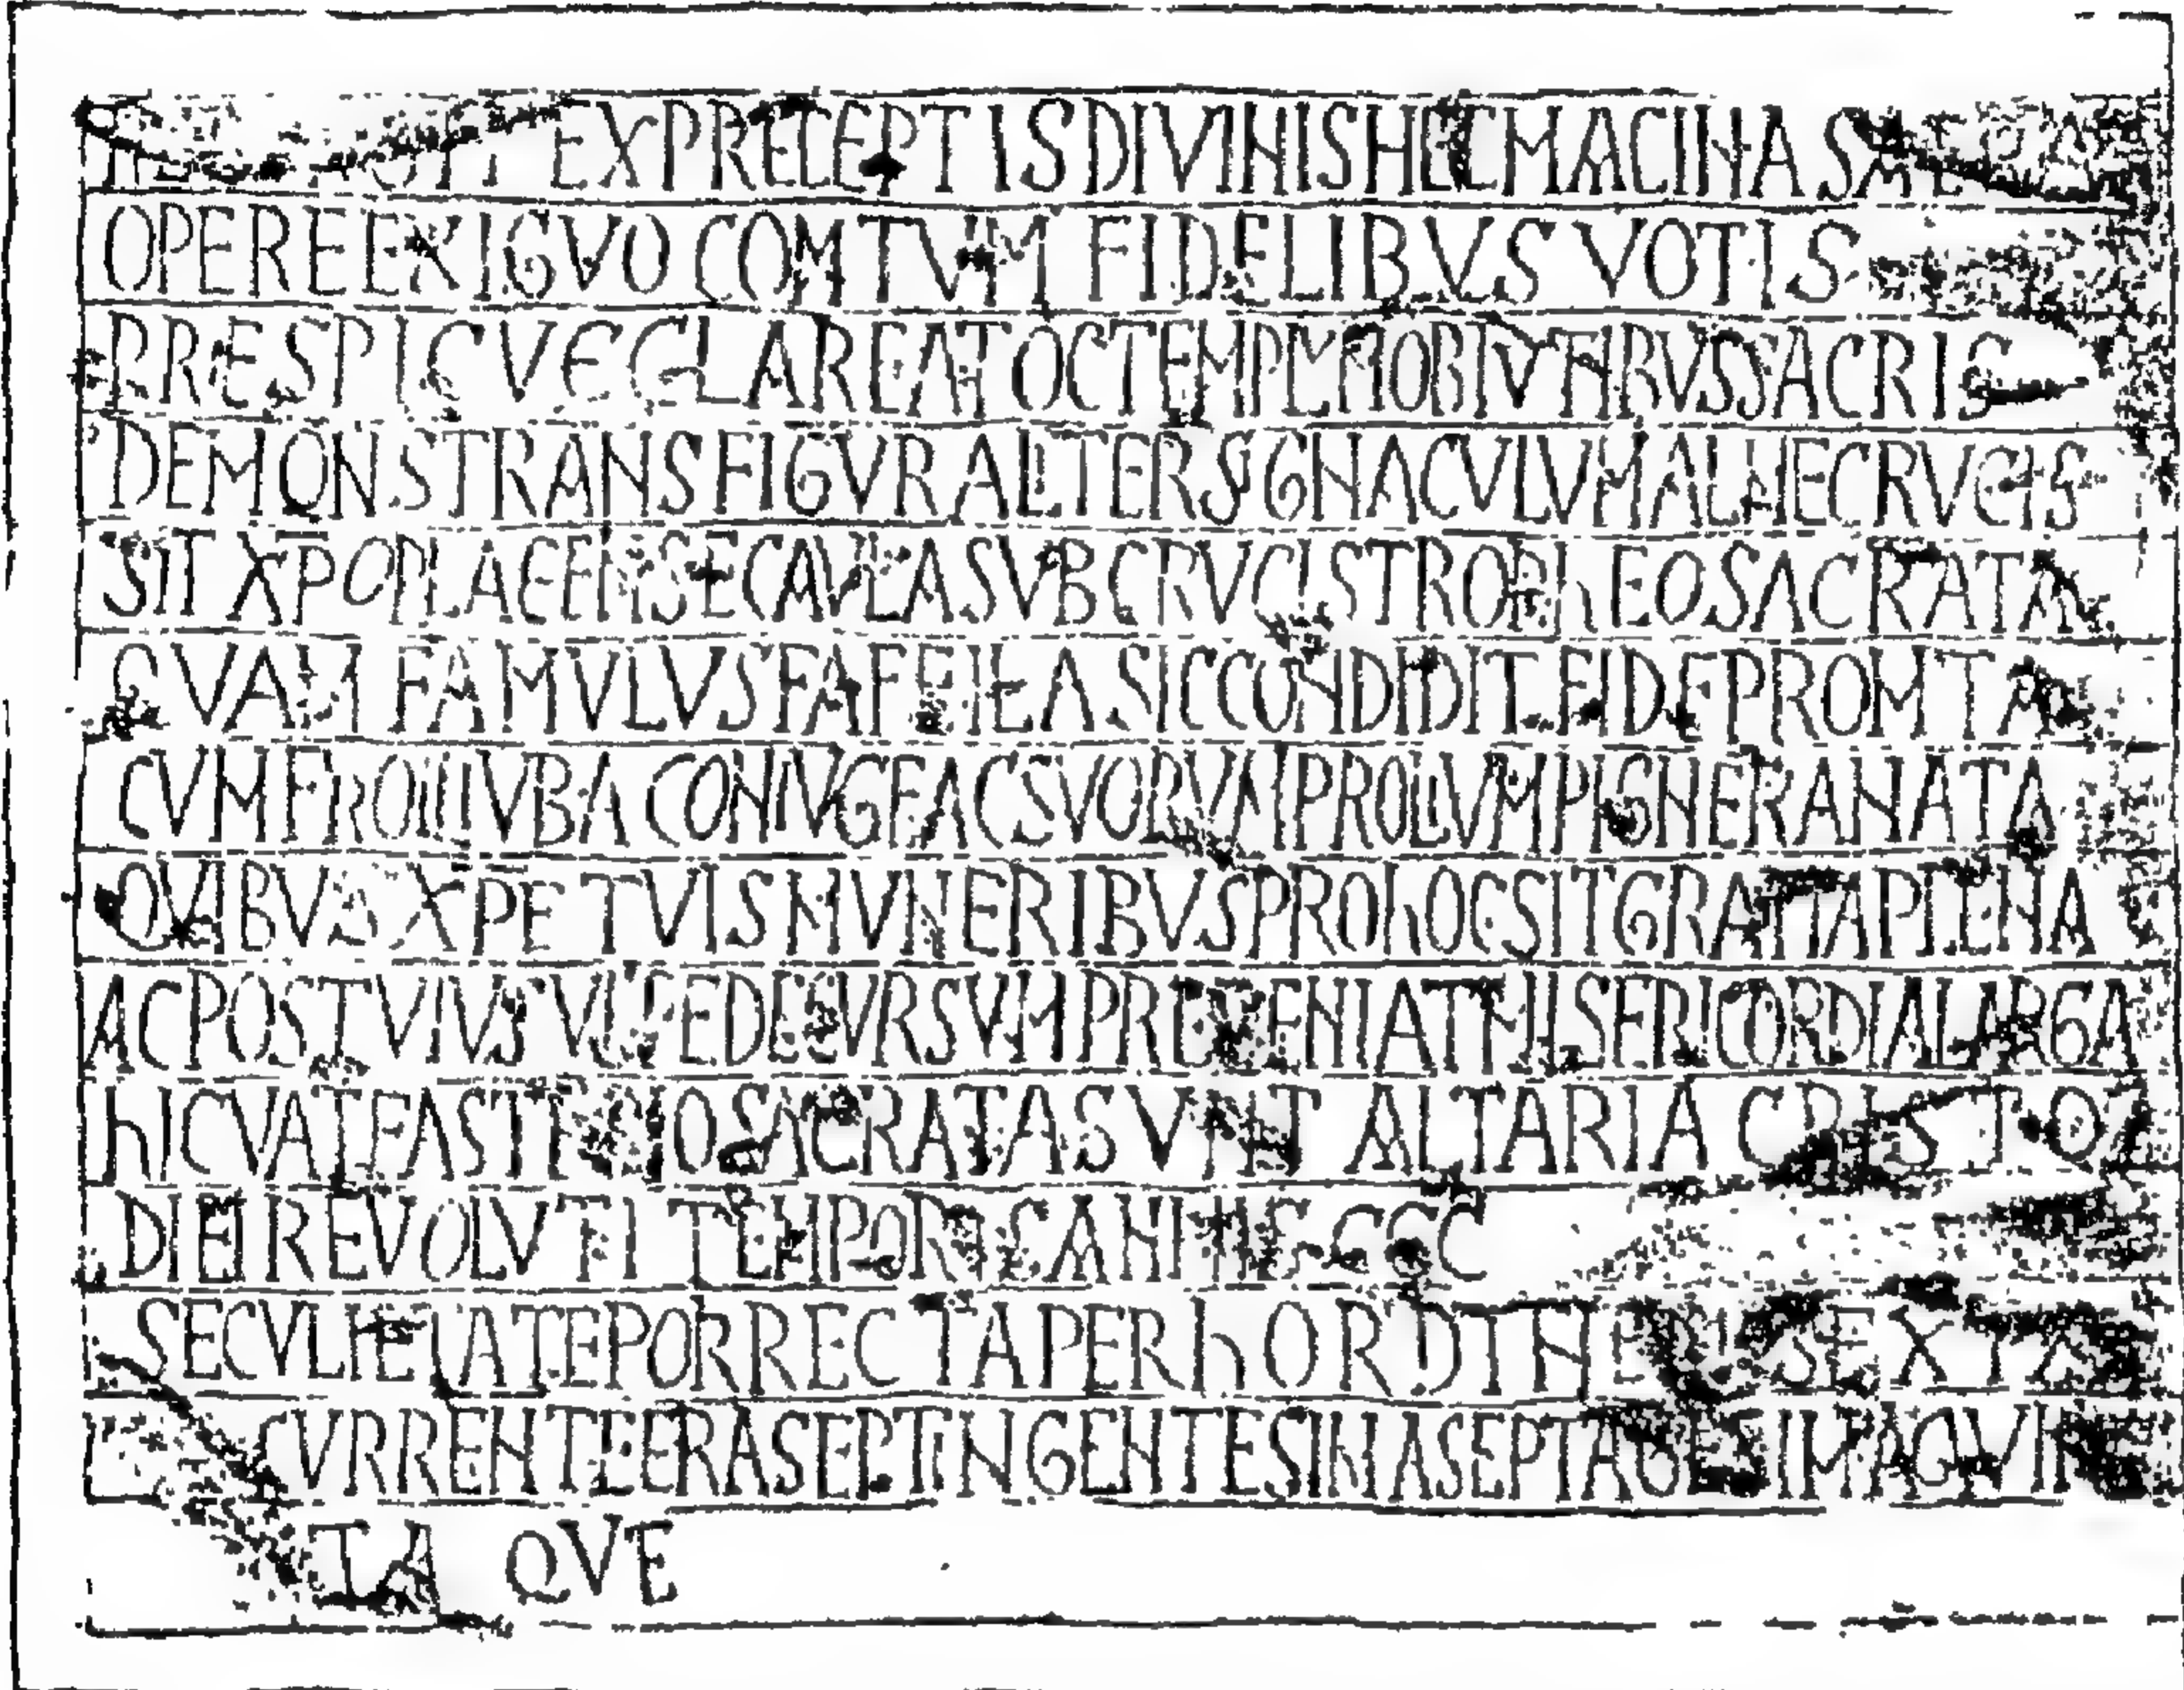 EX PRECEPTIS DIVINIS HEC MACINA
OPERE EXIGVO COMTVM FIDELIBVS VOTIS
PRESPICVE CLAREAT OC TEMPLVM OBTVTIBVS SACRIS
DEMONSTRANS FIGVRALITER SIGNACVLVM ALME CRVCIS
SIT XPO PLACENS EC AVLA SVB CRVCIS TROPhEO SACRATA
QVAM FAMVLVS FAFEILA SIC CONDIDIT FIDE PROMTA
CVM FROILIVBA CONIVGE AC SVORVM PROLIVM PIGNERA NATA
QVIBVS XPE TVIS MVNERIBVS PRO hOC SIT GRATIA PLENA
AC POST VIVS VITE DECVRSVM PREVENIAT MISERICORDIA LARGA
hIC VATE ASTERIO SACRATA SVNT ALTARIA CRISTO
DIEI REVOLVTI TEMPORIS ANNIS CCC
SECVLI ETATE PORRECTA PER hORDINEM SEXTA
CVRRENTE ERA SEPTINGENTESIMA SEPTAGESIMA QVIN
TA QVE